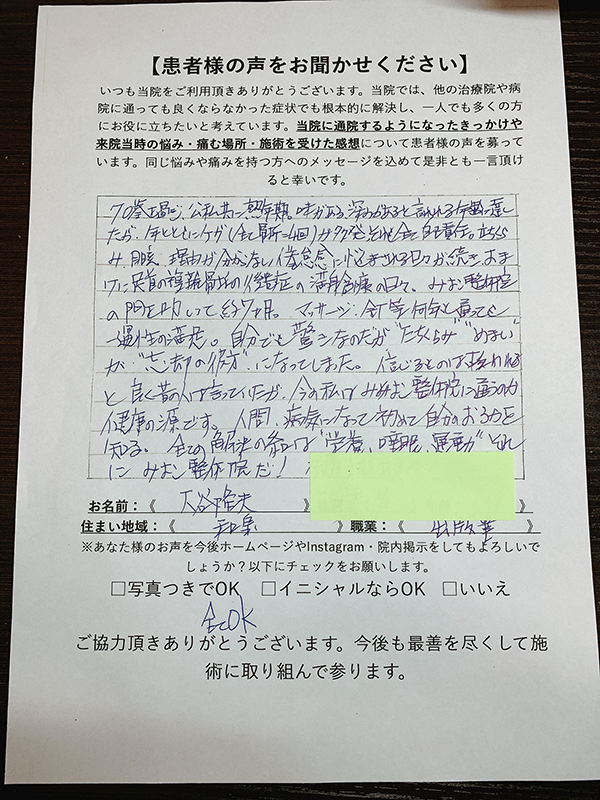 【患者様の声をお聞かせください】
いつも当院をご利用頂きありがとうございます。当院では、他の治療院や病
院に通っても良くならなかった症状でも根本的に解決し、一人でも多くの方
にお役に立ちたいと考えています。当院に通院するようになったきっかけや
来院当時の悩み・痛む場所・施術を受けた感想について患者様の声を募って
います。同じ悩みや痛みを持つ方へのメッセージを込めて是非とも一言頂け
ると幸いです。
70歳過ぎ、公私共に熟年期。味がある、深みがあると言われる年齢に達し
たが、年とともにケガ
み、理由が分からない倦怠感に悩まされる日々が続き、おま
けに の後遺症の 治療の日々、みお整体院
の門を叩いて約7ヶ月。マッサージ、針等何年と通っても
一過性の満足。自分でも驚きなのだが"たちくらみ""めまい"
が"忘却の彼方"になってしまった。信じるものは救われる
と良く昔の人は言っていたが、今の私はみお整体院に通うのが
健康の源です。人間、病気になって初めて自分のおろかを
知る。全ての解決の は"栄養、睡眠、運動"それ
にみお整体院だ!
お名前：《 》
住まい地域：《 》 職業：《 出版業 》
※あなた様のお声を今後ホームページやInstagram・院内掲示をしてもよろしいで
しょうか？以下にチェックをお願いします。
□写真つきでOK □イニシャルならOK □いいえ
全てOK
ご協力頂きありがとうございます。今後も最善を尽くして施
術に取り組んで参ります。